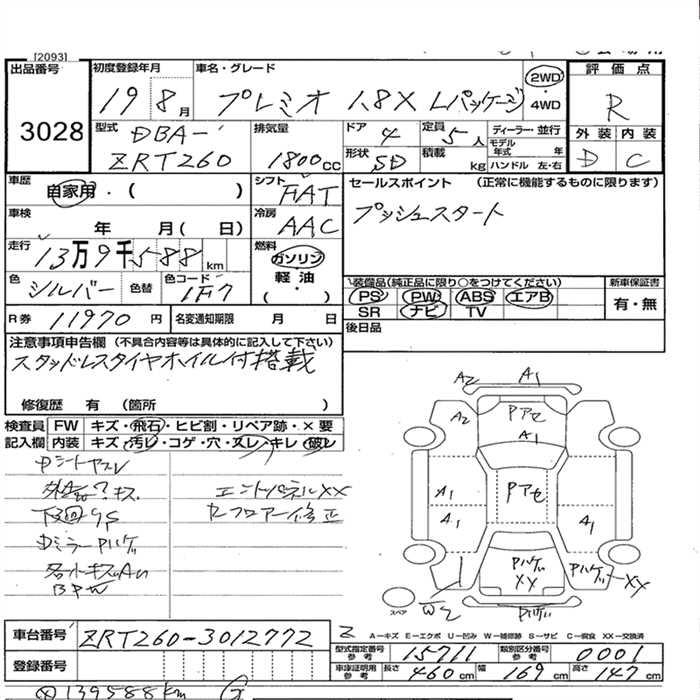 [2093]
出品番号 初度登録年月 車名・グレード 2WD ・ 4WD 評価点
3028 19 8月 プレミオ 1.8X Lパッケージ R
型式 DBA- ZRT260 排気量 1800cc ドア 4 定員 5人 ディーラー・並行 外装 内装
形状 SD 積載 kg モデル年式 年 ハンドル 左・右 D C
車歴 自家用・( ) シフト FAT セールスポイント (正常に機能するものに限ります)
車検 年 月( 日) 冷房 AAC プッシュスタート
走行 13万9千588km 燃料 ガソリン 軽油 ・( )
色 シルバー 色替 色コード 1F7
装備品(純正品に限り○をつけてください) 新車保証書
PS PW ABS エアB 有・無
SR ナビ TV
R券 11970円 名変通知期限 月 日 後日品
注意事項申告欄 (不具合内容等は具体的に記入して下さい)
スタッドレスタイヤホイル付搭載
修復歴 有 (箇所 )
検査員 FW キズ・飛石・ヒビ割・リペア跡・×要
記入欄 内装 キズ・汚レ・コゲ・穴・スレ・キレ・破レ
エンドパネルXX
DミラーPハゲ
A2 A1
A2 Pアセ
A1
Pアセ
A1 A1
A1
Pハゲ XX Pハゲ XX
W2 Pハゲ
スペア
A－キズ E－エクボ U－凹み W－補修跡 S－サビ C－腐食 XX－交換済
車台番号 ZRT260-3012772
型式指定番号 参考 15711 類別区分番号 参考 0001
登録番号
車庫証明用 参考 長さ 460cm 幅 169cm 高さ 147cm
139588km